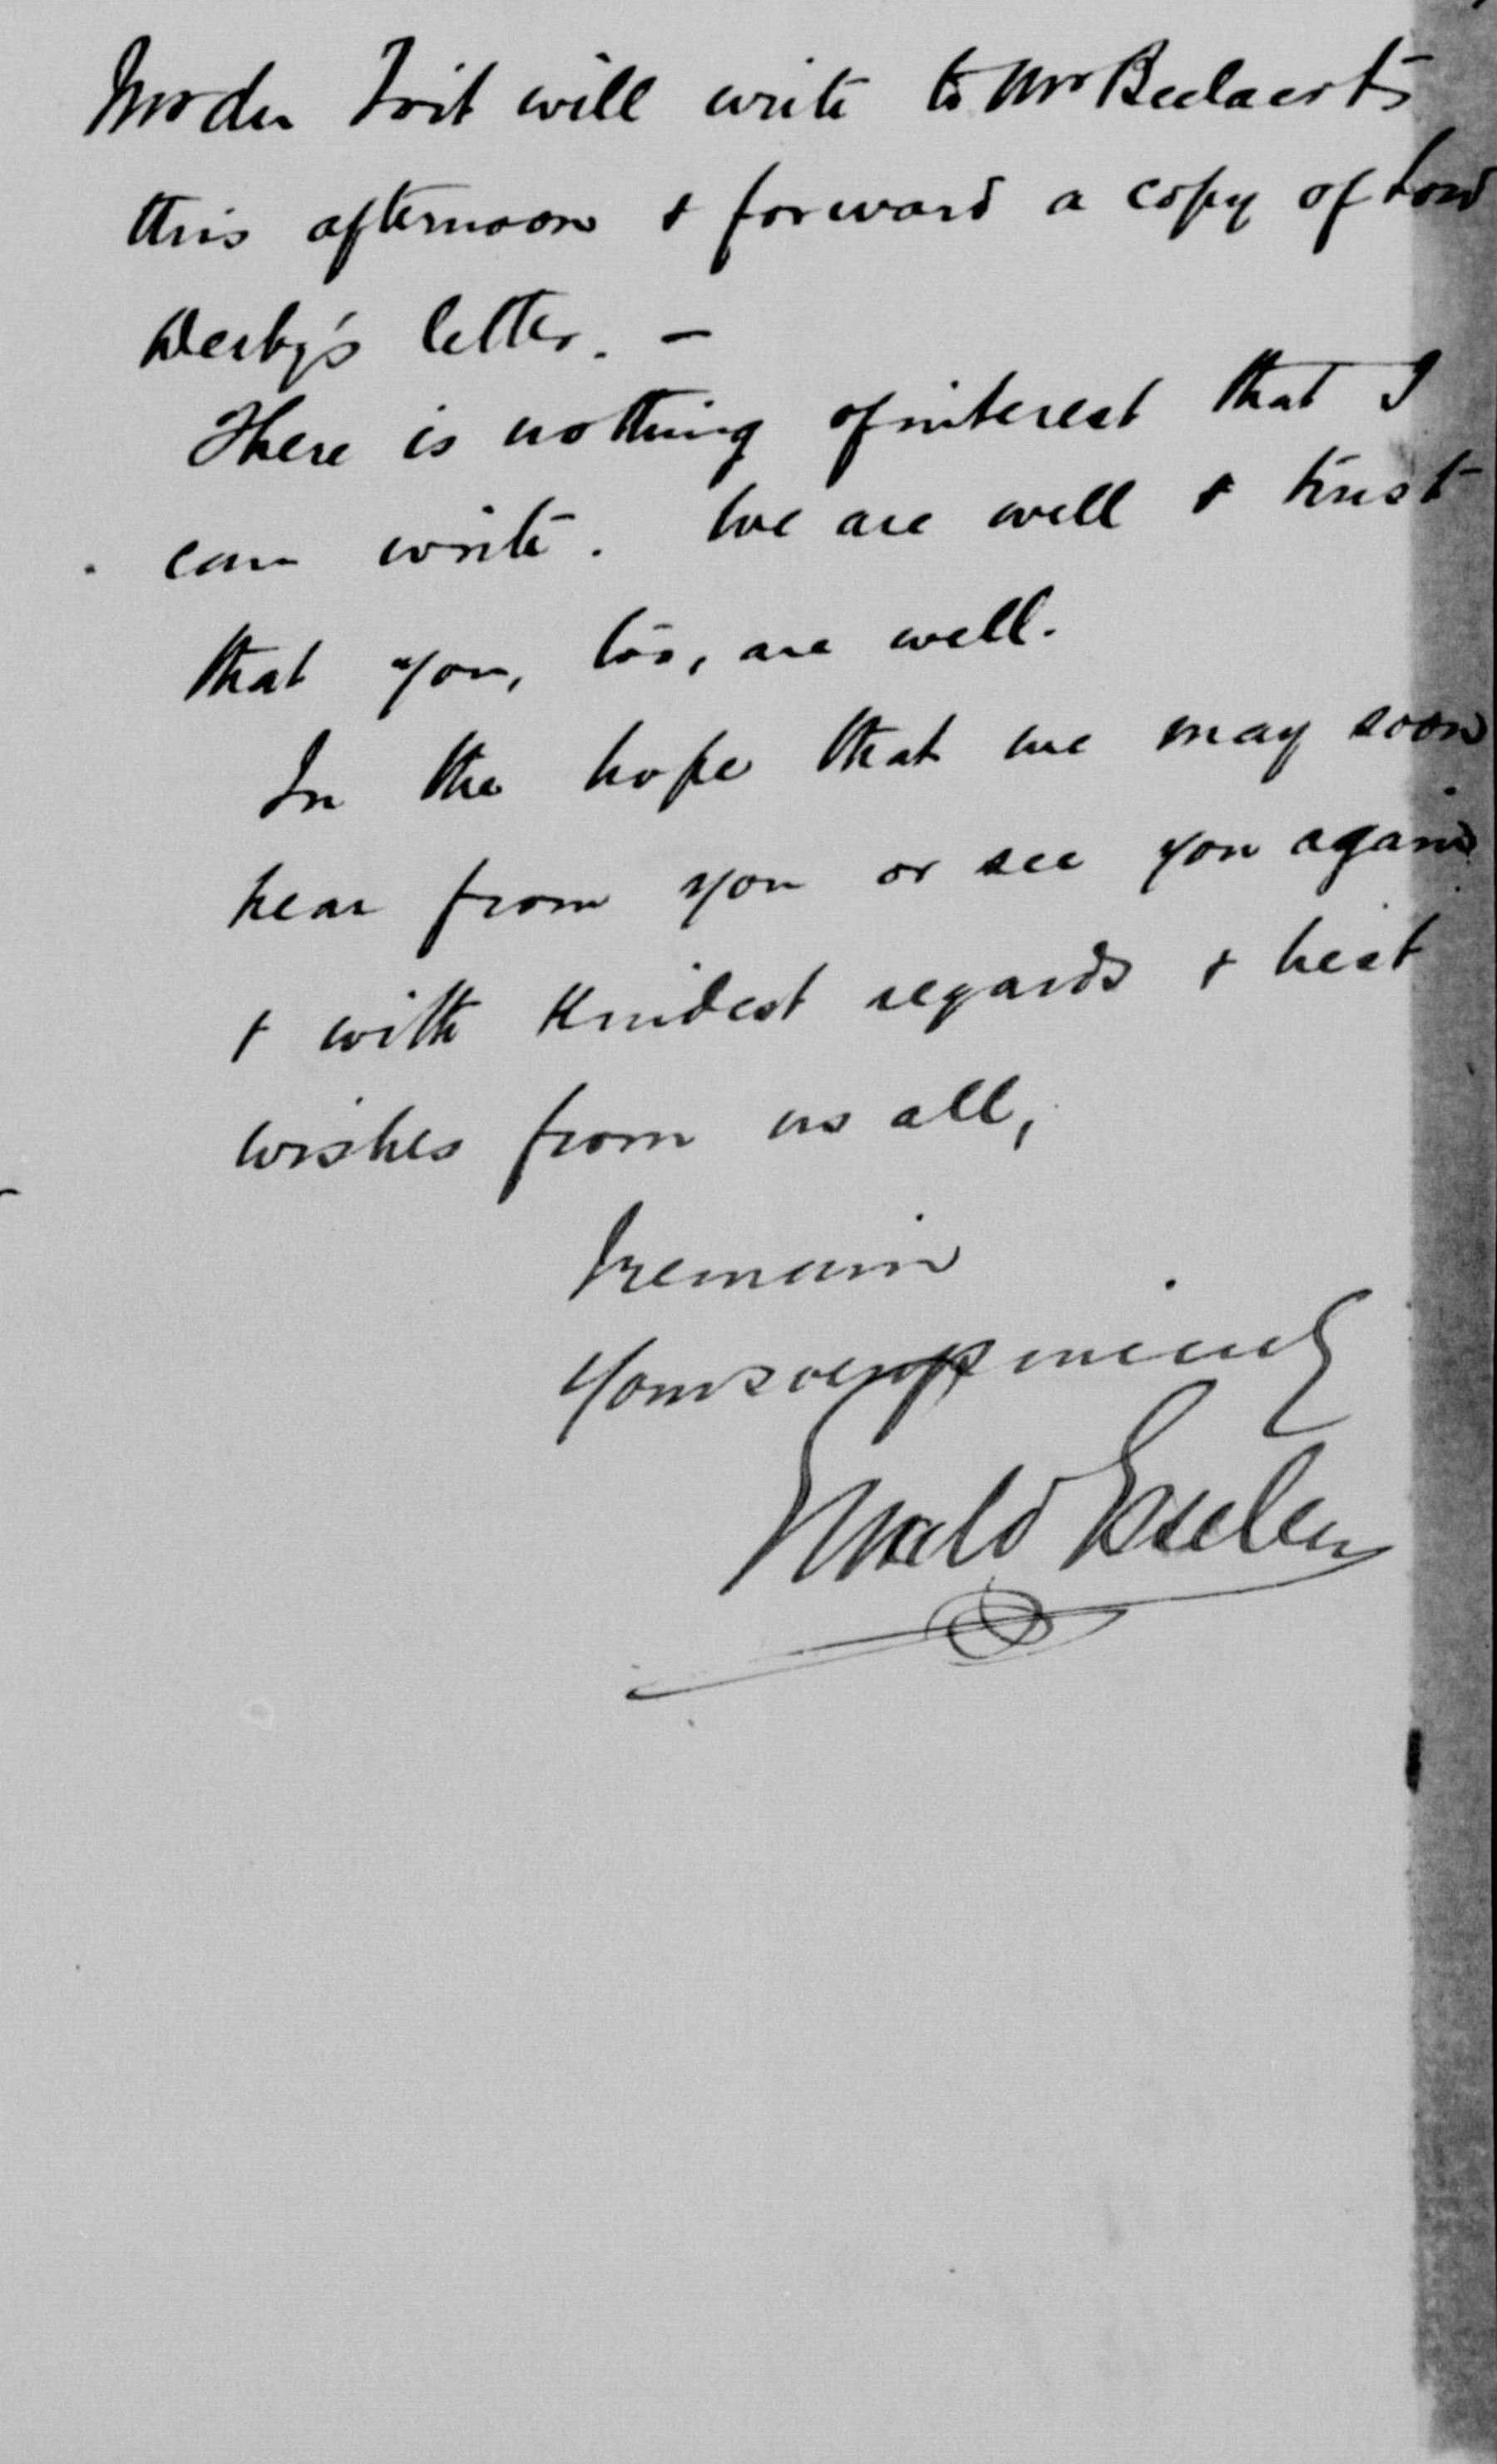 Mr du Toit will write to Mr Beelaerts
this afternoon & forward a copy of Lord
Derby's letter. —
There is nothing of interest that I
can write. We are well & trust
that you, too, are well.
In the hope that we may soon
hear from you or see you again
& with kindest regards & best
wishes from us all,
I remain
Yours very sincerely
Ewald Esselen